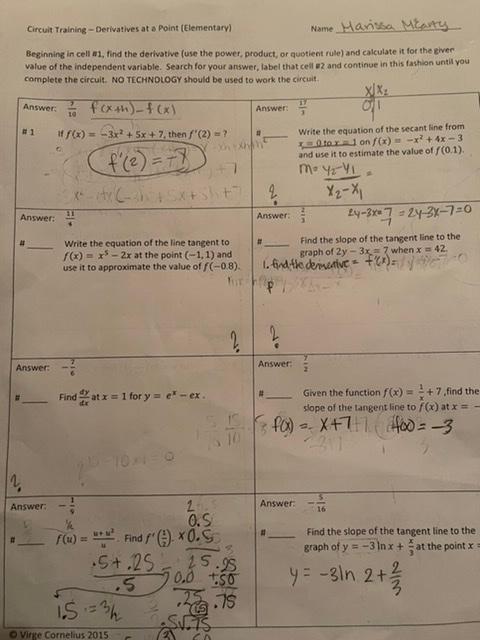 Circuit Training – Derivatives at a Point (Elementary)
Name Marissa
Beginning in cell #1, find the derivative (use the power, product, or quotient rule) and calculate it for the given
value of the independent variable. Search for your answer, label that cell #2 and continue in this fashion until you
complete the circuit. NO TECHNOLOGY should be used to work the circuit.
Answer: 7/10 f(x+h)-f(x)
# 1 If f(x) = −3x² + 5x + 7, then f'(2) = ?
f'(2) = -7
Answer: 17/3
x₁ x₂
0 1
# ____ Write the equation of the secant line from
x = 0 to x = 1 on f(x) = −x² + 4x − 3
and use it to estimate the value of f(0.1).
m= y₂-y₁ / x₂-x₁ =
?
Answer: 11/4
# ____ Write the equation of the line tangent to
f(x) = x⁵ − 2x at the point (−1, 1) and
use it to approximate the value of f(−0.8).
?
Answer: 2/3
2y-3x=7 = 2y-3x-7=0
# ____ Find the slope of the tangent line to the
graph of 2y − 3x = 7 when x = 42.
1. find the derivative = f'(x)=
?
Answer: −7/6
# ____ Find dy/dx at x = 1 for y = eˣ − ex.
?
Answer: 7/2
# ____ Given the function f(x) = 1/x + 7, find the
slope of the tangent line to f(x) at x = −
f(x) = x+7 f(x) = -3
Answer: −1/9
# ____ f(u) = u+u²/u. Find f'(1/2).
½
.5 + .25
.5
1.5 = 3/2
2
0.5
x 0.5
25
00.0
.25
.25
+.50
.75
.5√.75
Answer: −5/16
# ____ Find the slope of the tangent line to the
graph of y = −3 ln x + x/3 at the point x =
y = -3ln 2 + 2/3
© Virge Cornelius 2015